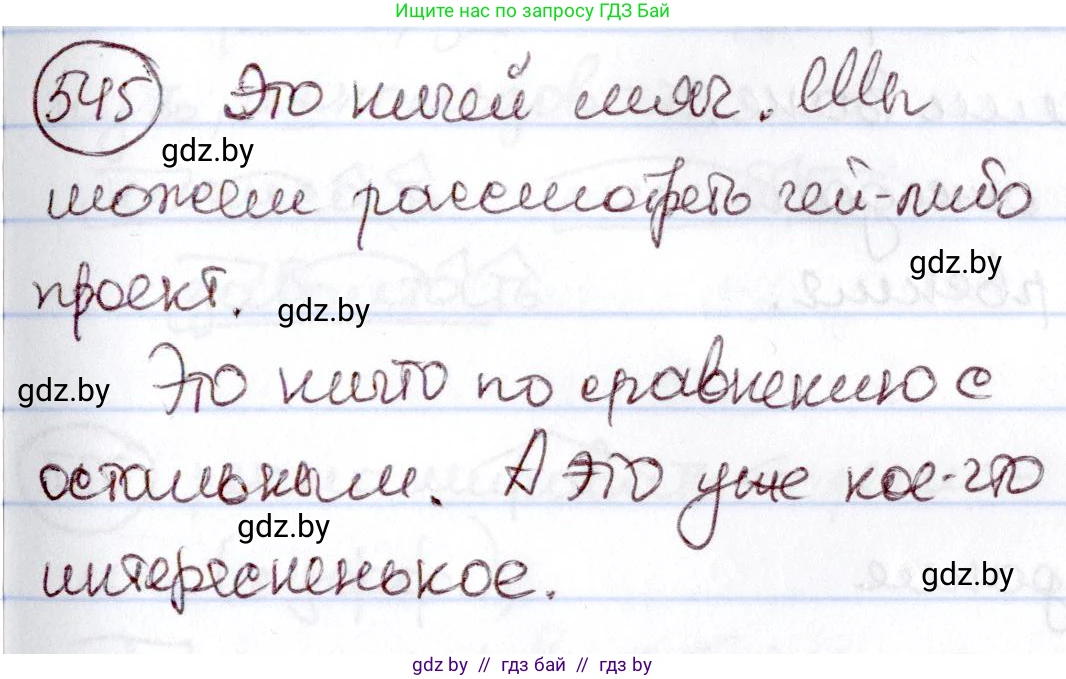 Ищите нас по запросу ГДЗ Бай
545 Это ничей мяч. Мы
gdz.by
можем рассмотреть чей-либо
gdz.by
проект.
gdz.by
gdz.by
Это ничто по сравнению с
остальным. А это уже кое-что
gdz.by
интересненькое.
gdz.by
gdz.by // гдз бай // gdz.by